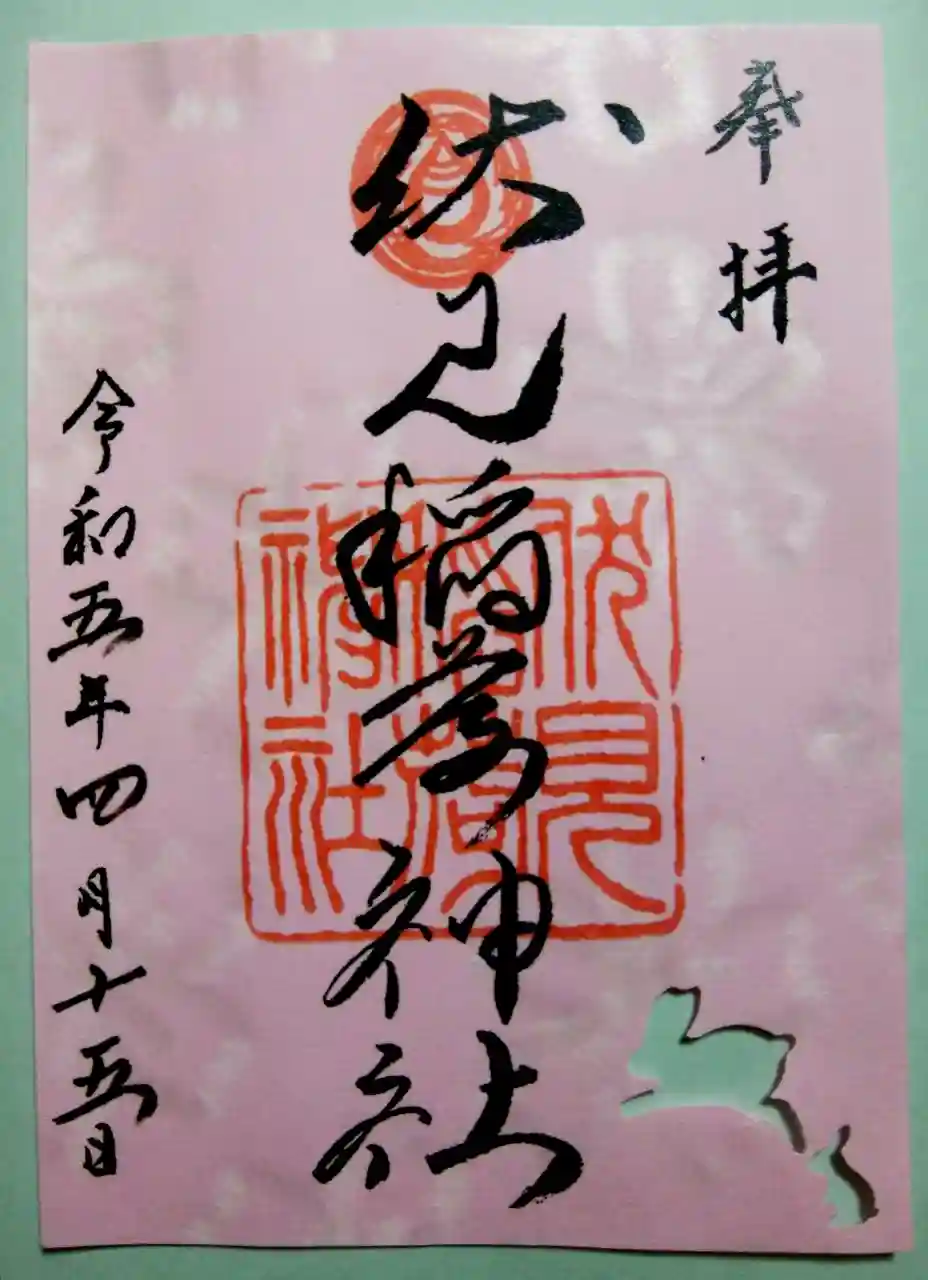 奉拝
伏見稲荷神社
伏見
稲荷
神社
令和五年四月十五日